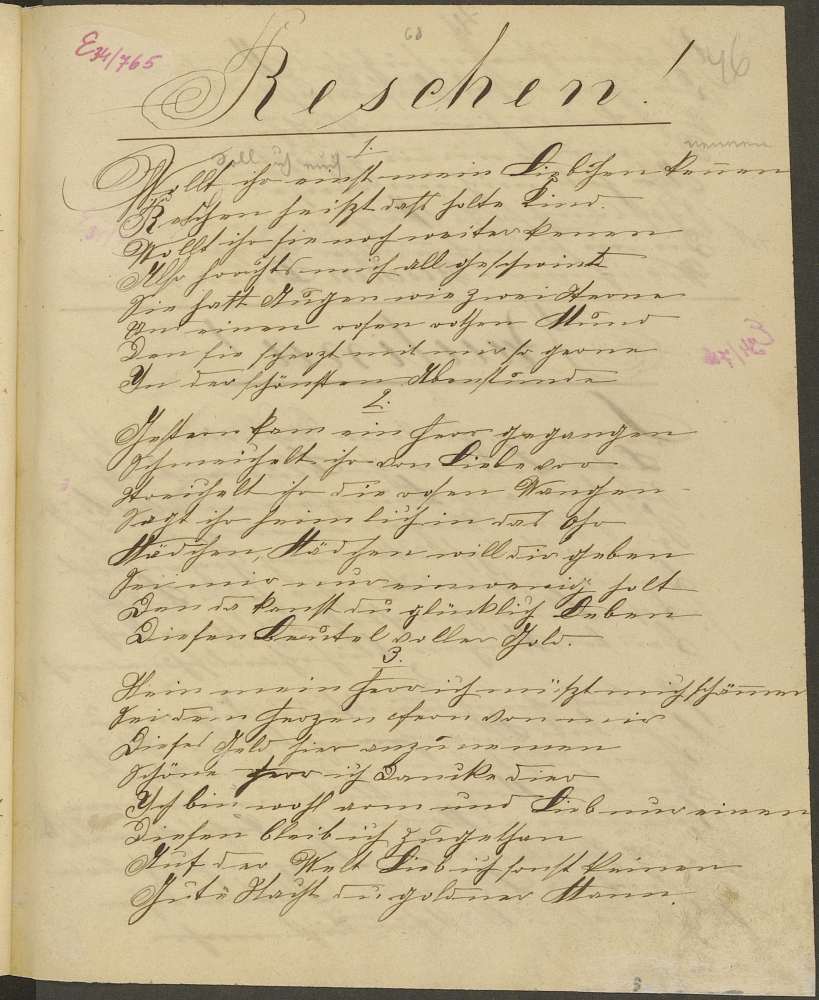 E31/765
68
76
Reschen!
1.
soll ich euch nennen
Wollt ihr einst mein Liebchen kennen
Reschen heißt daß holte Kind.
Wollt ihr sie noch weiter kenen
Also horchts mich all geschwint
Sie hatt Augen wie zwei Sterne
Um einen rosen rothen Mund
Den sie scherzt mit mir so gerne
In der schönsten Abenstunde
2.
Gestern kam ein Herr gegangen
Schmeichelt ihr von Liebe vor
Streichelt ihr die rosen Wangen
Sagt ihr heimlich in das Ohr
Mädchen, Mädchen will dir geben
Sei mir nur ein wenig holt
Den da kanst du glücklich Leben
Diesen Beutel voller Gold.
3.
Nein mein Herr ich müßt mich schämen
Sei dem Herzen fern von mir
Dieses Geld hier anzunemen
Schöne Herr ich Dancke dier
Ich bin wohl arm und Lieb nur einen
Diesen bleib ich zugethan
Auf der Welt Lieb ich sonst keinen
Gute Nacht du goldner Mann.